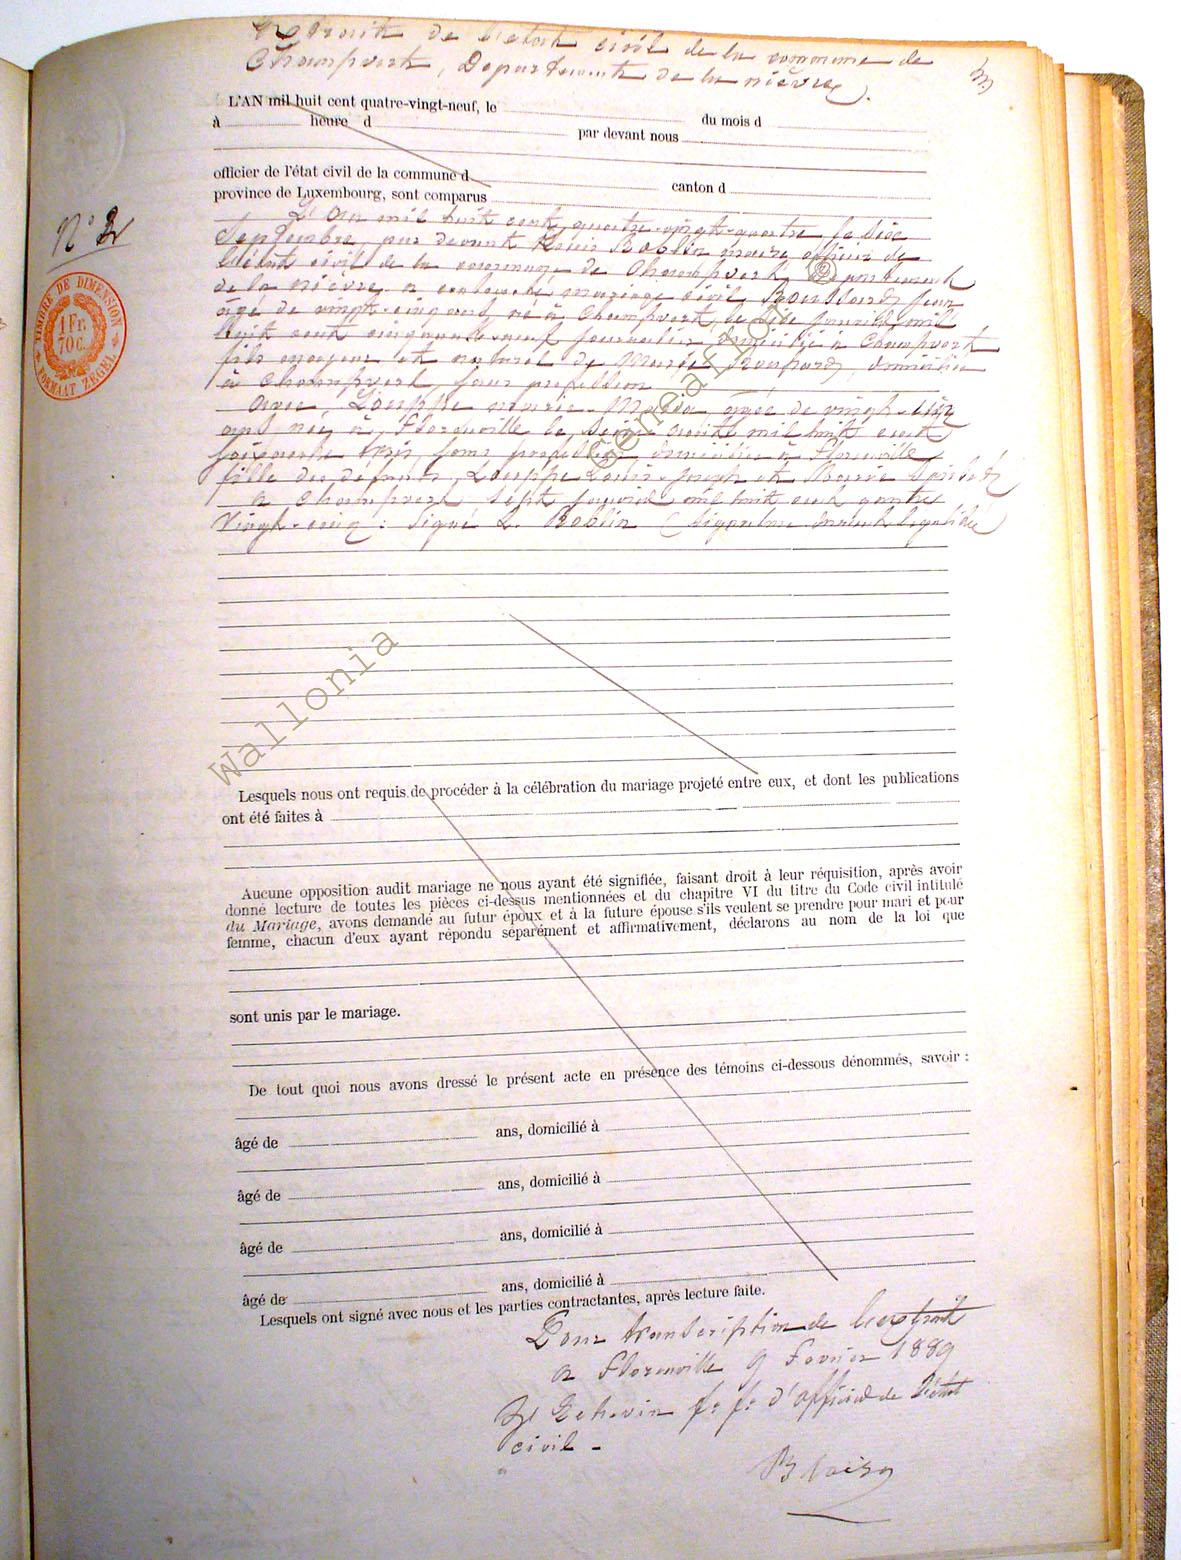 Extrait de l'état civil de la commune de
Champvert, Département de la nièvre.
L'AN mil huit cent quatre-vingt-neuf, le du mois d
à heure d par devant nous
officier de l'état civil de la commune d canton d
province de Luxembourg, sont comparus
N° 2
TIMBRE DE DIMENSION
1 Fr.
70 C.
FORMAAT ZEGEL
L'an mil huit cent quatre-vingt-quatre le six
Septembre, par devant Louis Roblin maire officier de
l'état civil de la commune de Champvert, Département
de la nièvre a contracté mariage civil Roupard, Jean
âgé de vingt-cinq ans, né à Champvert, le six avril mil
huit cent cinquante-neuf journalier domicilié à Champvert
fils et naturel de Marie Roupard, domiciliée
à Champvert, sans profession
avec, Louppe marie Maria âgée de vingt-un
ans née à Florenville le seize août mil huit cent
soixante trois, sans profession domiciliée à Florenville,
fille des défunts, Louppe Louis-Joseph et Marie
a Champvert, sept janvier mil huit cent quatre
Vingt-cinq: Signé L. Roblin (Signature dûment légalisée)
© GeneaLLon
Wallonia
Lesquels nous ont requis de procéder à la célébration du mariage projeté entre eux, et dont les publications
ont été faites à
Aucune opposition audit mariage ne nous ayant été signifiée, faisant droit à leur réquisition, après avoir
donné lecture de toutes les pièces ci-dessus mentionnées et du chapitre VI du titre du Code civil intitulé
du Mariage, avons demandé au futur époux et à la future épouse s'ils veulent se prendre pour mari et pour
femme, chacun d'eux ayant répondu séparément et affirmativement, déclarons au nom de la loi que
sont unis par le mariage.
De tout quoi nous avons dressé le présent acte en présence des témoins ci-dessous dénommés, savoir :
âgé de ans, domicilié à
âgé de ans, domicilié à
âgé de ans, domicilié à
âgé de ans, domicilié à
Lesquels ont signé avec nous et les parties contractantes, après lecture faite.
Pour transcription de l'extrait
a Florenville 9 Février 1889
L'Echevin f. f. d'officier de l'état
civil -
Blaise